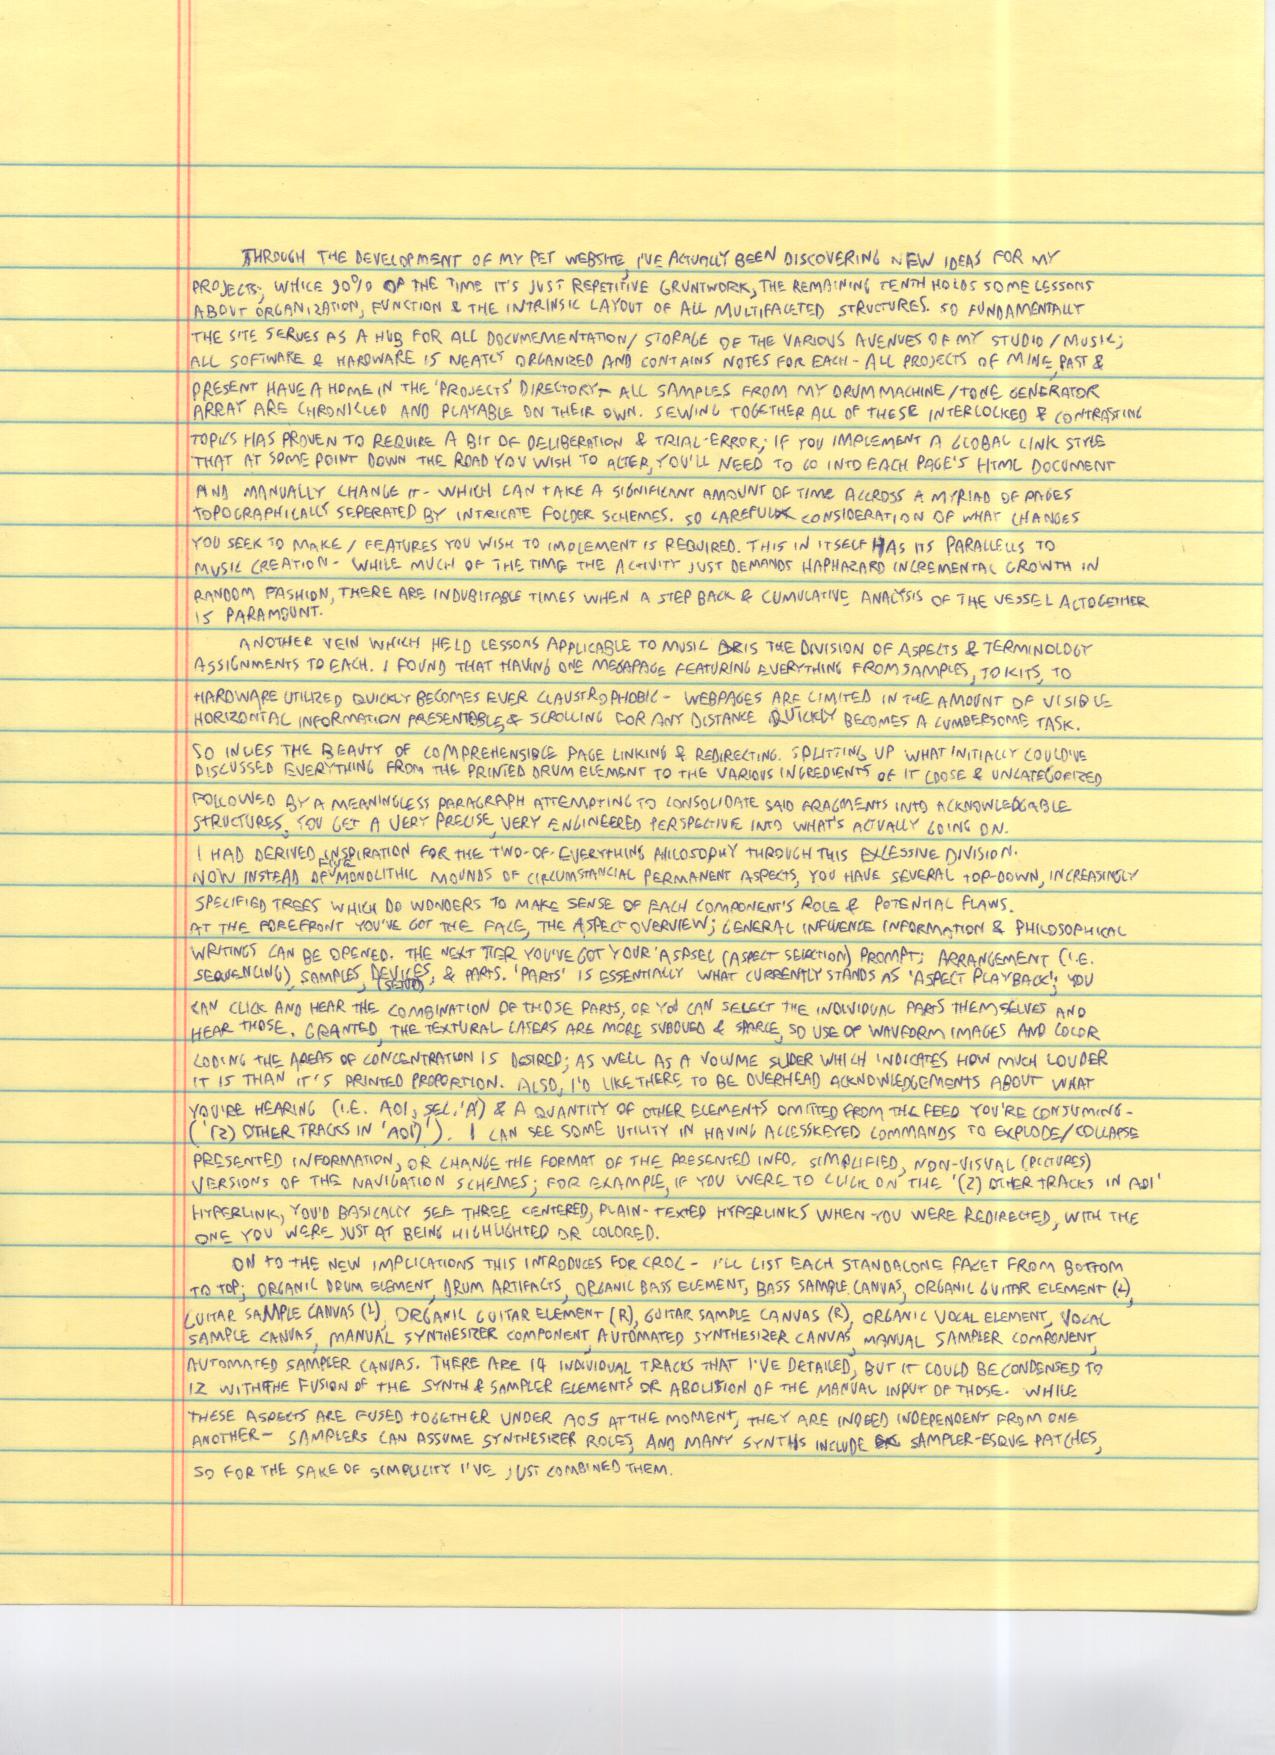 THROUGH THE DEVELOPMENT OF MY PET WEBSITE, I'VE ACTUALLY BEEN DISCOVERING NEW IDEAS FOR MY
PROJECTS; WHILE 90% OF THE TIME IT'S JUST REPETITIVE GRUNTWORK, THE REMAINING TENTH HOLDS SOME LESSONS
ABOUT ORGANIZATION, FUNCTION & THE INTRINSIC LAYOUT OF ALL MULTIFACETED STRUCTURES. SO FUNDAMENTALLY
THE SITE SERVES AS A HUB FOR ALL DOCUMEMENTATION/STORAGE OF THE VARIOUS AVENUES OF MY STUDIO/MUSIC;
ALL SOFTWARE & HARDWARE IS NEATLY ORGANIZED AND CONTAINS NOTES FOR EACH - ALL PROJECTS OF MINE, PAST &
PRESENT HAVE A HOME IN THE 'PROJECTS' DIRECTORY - ALL SAMPLES FROM MY DRUM MACHINE/TONE GENERATOR
ARRAY ARE CHRONICLED AND PLAYABLE ON THEIR OWN. SEWING TOGETHER ALL OF THESE INTERLOCKED & CONTRASTING
TOPICS HAS PROVEN TO REQUIRE A BIT OF DELIBERATION & TRIAL-ERROR; IF YOU IMPLEMENT A GLOBAL LINK STYLE
THAT AT SOME POINT DOWN THE ROAD YOU WISH TO ALTER, YOU'LL NEED TO GO INTO EACH PAGE'S HTML DOCUMENT
AND MANUALLY CHANGE IT - WHICH CAN TAKE A SIGNIFICANT AMOUNT OF TIME ACCROSS A MYRIAD OF PAGES
TOPOGRAPHICALLY SEPERATED BY INTRICATE FOLDER SCHEMES. SO CAREFUL CONSIDERATION OF WHAT CHANGES
YOU SEEK TO MAKE/FEATURES YOU WISH TO IMPLEMENT IS REQUIRED. THIS IN ITSELF HAS ITS PARALLELS TO
MUSIC CREATION - WHILE MUCH OF THE TIME THE ACTIVITY JUST DEMANDS HAPHAZARD INCREMENTAL GROWTH IN
RANDOM FASHION, THERE ARE INDUBITABLE TIMES WHEN A STEP BACK & CUMULATIVE ANALYSIS OF THE VESSEL ALTOGETHER
IS PARAMOUNT.
ANOTHER VEIN WHICH HELD LESSONS APPLICABLE TO MUSIC IS THE DIVISION OF ASPECTS & TERMINOLOGY
ASSIGNMENTS TO EACH. I FOUND THAT HAVING ONE MEGAPAGE FEATURING EVERYTHING FROM SAMPLES, TO KITS, TO
HARDWARE UTILIZED QUICKLY BECOMES EVER CLAUSTROPHOBIC - WEBPAGES ARE LIMITED IN THE AMOUNT OF VISIBLE
HORIZONTAL INFORMATION PRESENTABLE, & SCROLLING FOR ANY DISTANCE QUICKLY BECOMES A CUMBERSOME TASK.
SO IN THE BEAUTY OF COMPREHENSIBLE PAGE LINKING & REDIRECTING. SPLITTING UP WHAT INITIALLY COULD'VE
DISCUSSED EVERYTHING FROM THE PRINTED DRUM ELEMENT TO THE VARIOUS INGREDIENTS OF IT LOOSE & UNCATEGORIZED
FOLLOWED BY A MEANINGLESS PARAGRAPH ATTEMPTING TO CONSOLIDATE SAID FRAGMENTS INTO ACKNOWLEDGABLE
STRUCTURES, YOU GET A VERY PRECISE, VERY ENGINEERED PERSPECTIVE INTO WHAT'S ACTUALLY GOING ON.
I HAD DERIVED INSPIRATION FOR THE TWO-OF-EVERYTHING PHILOSOPHY THROUGH THIS EXCESSIVE DIVISION.
NOW INSTEAD OF FIVE MONOLITHIC MOUNDS OF CIRCUMSTANCIAL PERMANENT ASPECTS, YOU HAVE SEVERAL TOP-DOWN, INCREASINGLY
SPECIFIED TREES WHICH DO WONDERS TO MAKE SENSE OF EACH COMPONENT'S ROLE & POTENTIAL FLAWS.
AT THE FOREFRONT YOU'VE GOT THE FACE, THE ASPECT OVERVIEW; GENERAL INFLUENCE INFORMATION & PHILOSOPHICAL
WRITINGS CAN BE OPENED. THE NEXT TIER YOU'VE GOT YOUR 'ASPSEL (ASPECT SELECTION) PROMPT; ARRANGEMENT (I.E.
SEQUENCING), SAMPLES, DEVICES (SETUP), & PARTS. 'PARTS' IS ESSENTIALLY WHAT CURRENTLY STANDS AS 'ASPECT PLAYBACK'; YOU
CAN CLICK AND HEAR THE COMBINATION OF THOSE PARTS, OR YOU CAN SELECT THE INDIVIDUAL PARTS THEMSELVES AND
HEAR THOSE. GRANTED, THE TEXTURAL LAYERS ARE MORE SUBDUED & SPARCE, SO USE OF WAVEFORM IMAGES AND COLOR
CODING THE AREAS OF CONCENTRATION IS DESIRED; AS WELL AS A VOLUME SLIDER WHICH INDICATES HOW MUCH LOUDER
IT IS THAN IT'S PRINTED PROPORTION. ALSO, I'D LIKE THERE TO BE OVERHEAD ACKNOWLEDGEMENTS ABOUT WHAT
YOU'RE HEARING (I.E. A01, SEL. 'A') & A QUANTITY OF OTHER ELEMENTS OMITTED FROM THE FEED YOU'RE CONSUMING -
('(2) OTHER TRACKS IN 'A01''). I CAN SEE SOME UTILITY IN HAVING ACCESSKEYED COMMANDS TO EXPLODE/COLLAPSE
PRESENTED INFORMATION, OR CHANGE THE FORMAT OF THE PRESENTED INFO. SIMPLIFIED, NON-VISUAL (PICTURES)
VERSIONS OF THE NAVIGATION SCHEMES; FOR EXAMPLE, IF YOU WERE TO CLICK ON THE '(2) OTHER TRACKS IN A01'
HYPERLINK, YOU'D BASICALLY SEE THREE CENTERED, PLAIN-TEXTED HYPERLINKS WHEN YOU WERE REDIRECTED, WITH THE
ONE YOU WERE JUST AT BEING HIGHLIGHTED OR COLORED.
ON TO THE NEW IMPLICATIONS THIS INTRODUCES FOR CROC - I'LL LIST EACH STANDALONE FACET FROM BOTTOM
TO TOP; ORGANIC DRUM ELEMENT, DRUM ARTIFACTS, ORGANIC BASS ELEMENT, BASS SAMPLE CANVAS, ORGANIC GUITAR ELEMENT (L),
GUITAR SAMPLE CANVAS (L), ORGANIC GUITAR ELEMENT (R), GUITAR SAMPLE CANVAS (R), ORGANIC VOCAL ELEMENT, VOCAL
SAMPLE CANVAS, MANUAL SYNTHESIZER COMPONENT, AUTOMATED SYNTHESIZER CANVAS, MANUAL SAMPLER COMPONENT,
AUTOMATED SAMPLER CANVAS. THERE ARE 14 INDIVIDUAL TRACKS THAT I'VE DETAILED, BUT IT COULD BE CONDENSED TO
12 WITH THE FUSION OF THE SYNTH & SAMPLER ELEMENTS OR ABOLITION OF THE MANUAL INPUT OF THOSE. WHILE
THESE ASPECTS ARE FUSED TOGETHER UNDER A05 AT THE MOMENT, THEY ARE INDEED INDEPENDENT FROM ONE
ANOTHER - SAMPLERS CAN ASSUME SYNTHESIZER ROLES, AND MANY SYNTHS INCLUDE SAMPLER-ESQUE PATCHES,
SO FOR THE SAKE OF SIMPLICITY I'VE JUST COMBINED THEM.